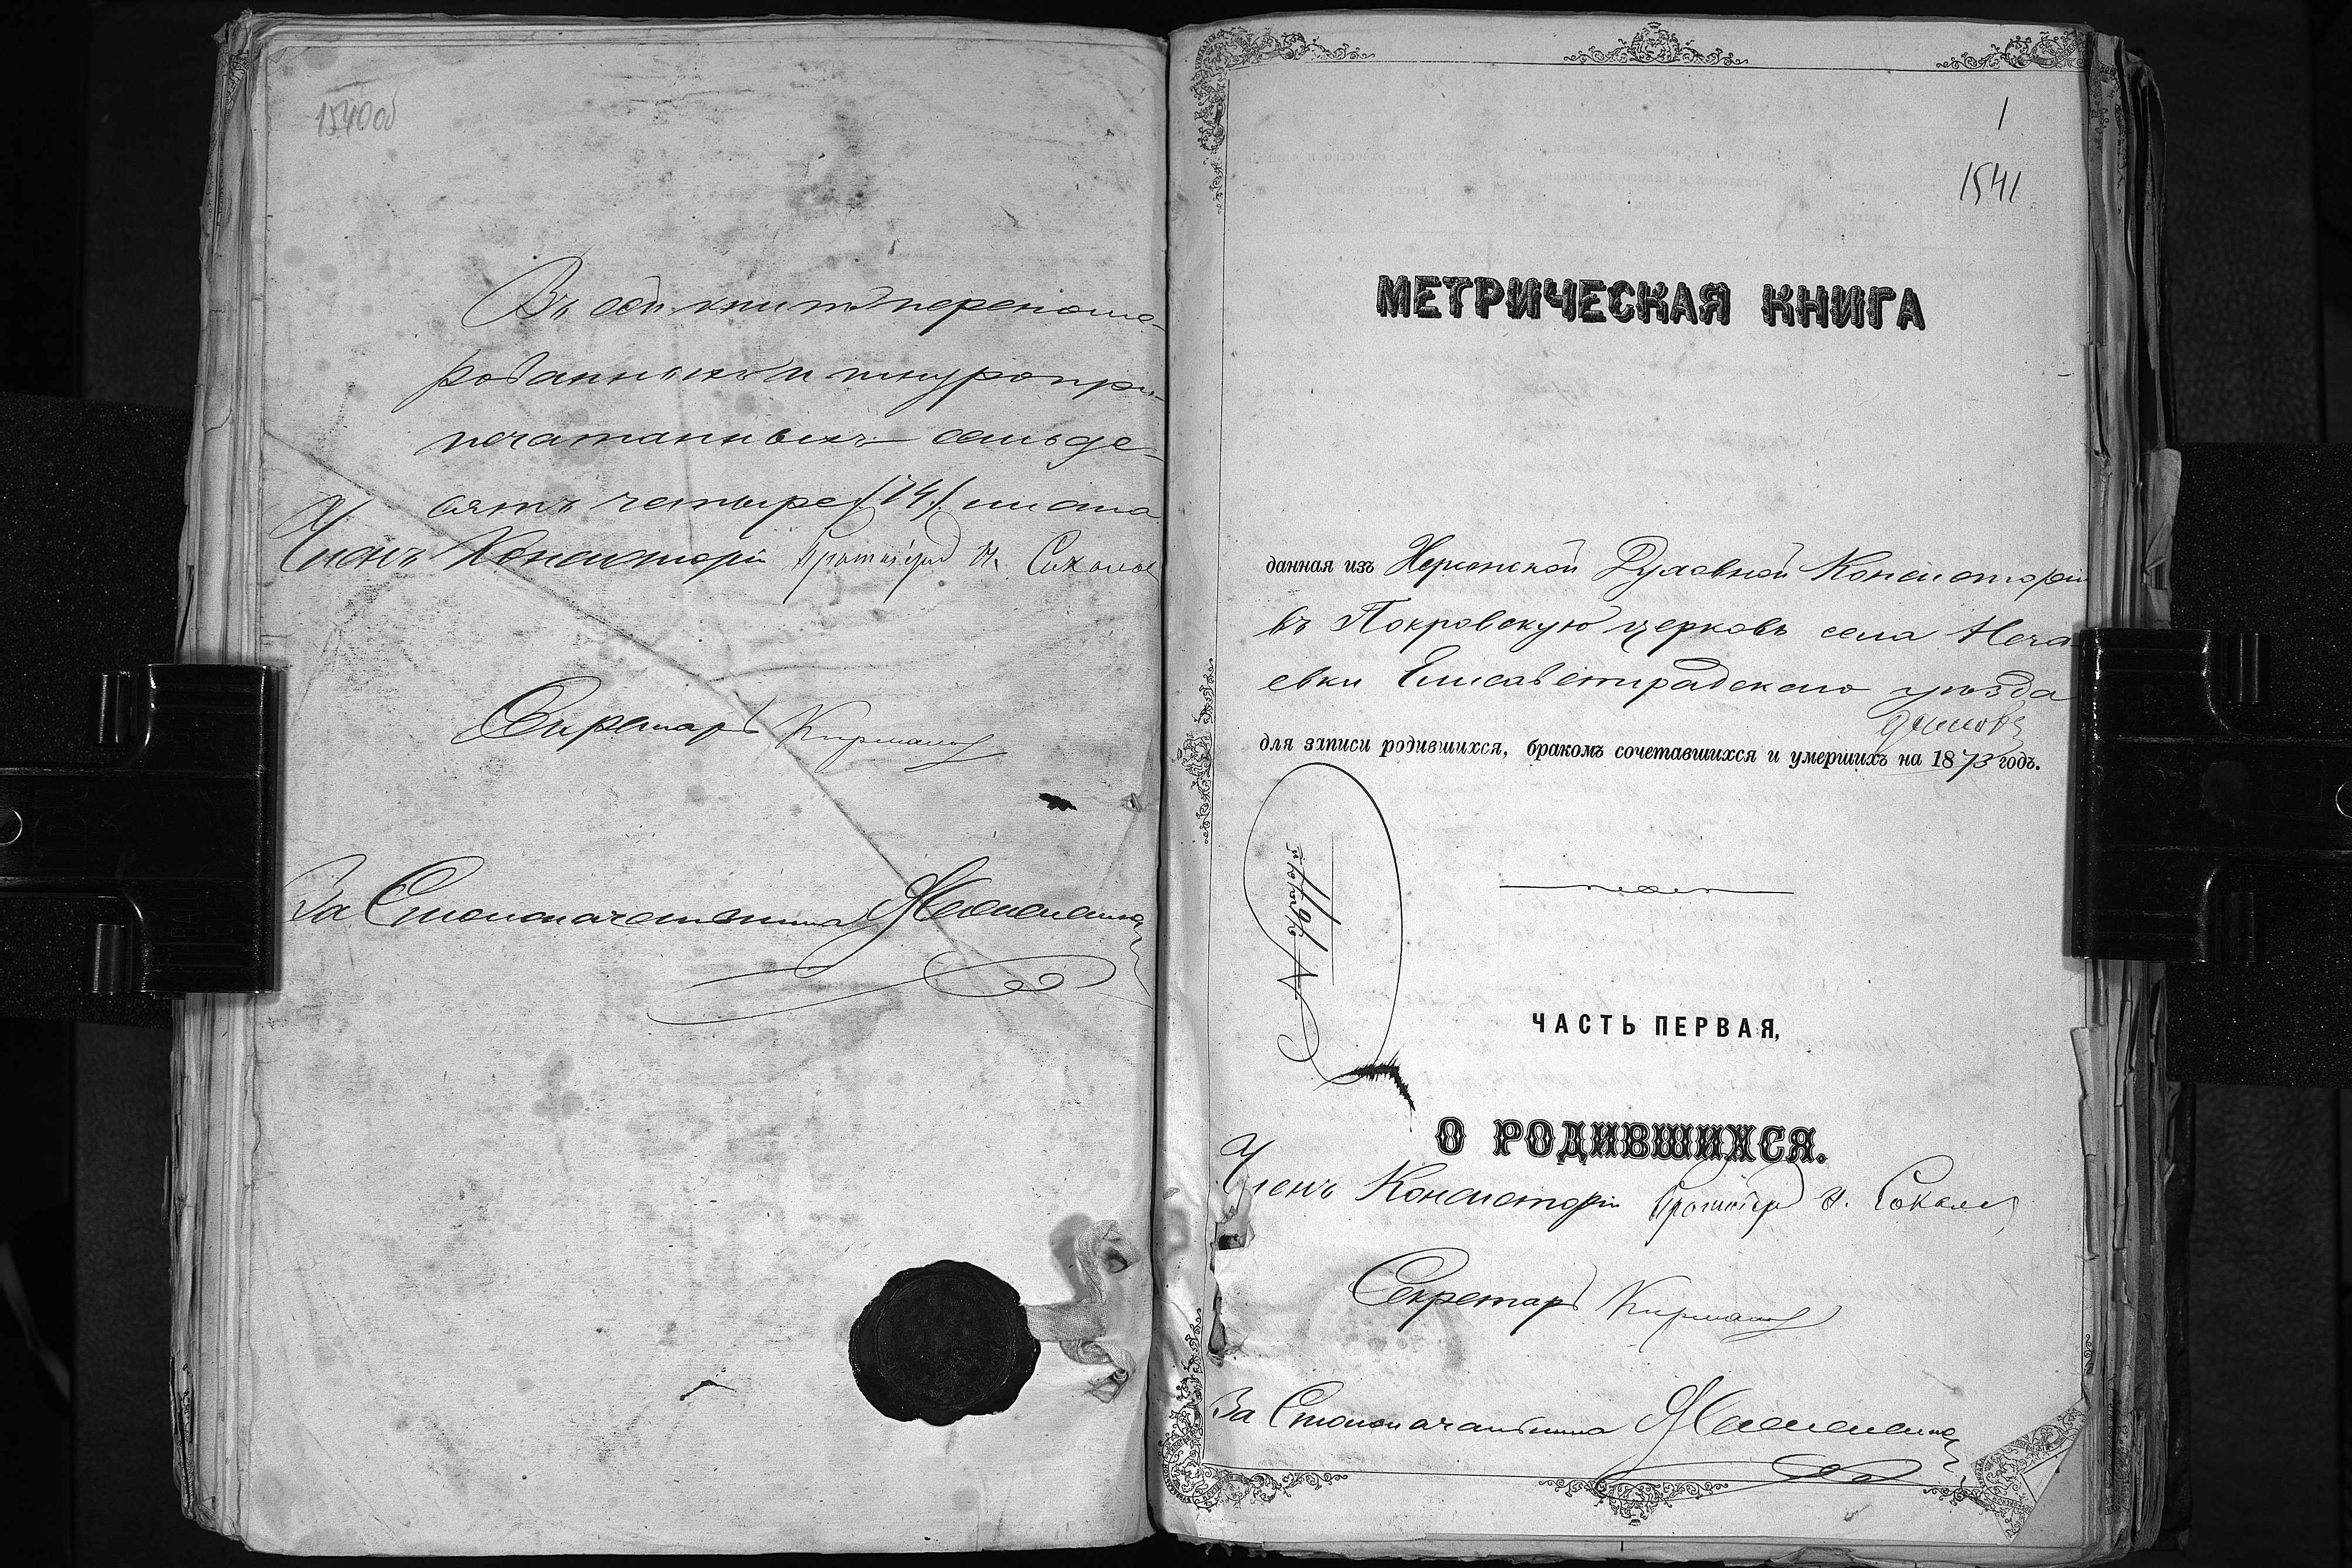 1540об
Въ сей книгѣ перенуме-
рованныхъ и шнуропри-
печатанныхъ семьде-
сятъ четыре /74/ листа.
Членъ Консисторіи Протоіерей Соколов
Секретарь
За Столоначальника
1
1541
МЕТРИЧЕСКАЯ КНИГА
данная изъ Херсонской Духовной Консисторіи
въ Покровскую церковь села Неча-
евки Елисаветградскаго уѣзда
для записи родившихся, бракомъ сочетавшихся и умершихъ на 1873 годъ.
ЧАСТЬ ПЕРВАЯ,
О РОДИВШИХСЯ.
Членъ Консисторіи Протоіерей Соколов
Секретарь
За Столоначальника